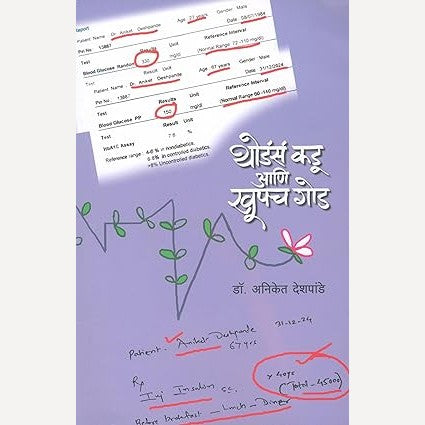 Report
Patient Name : Dr. Aniket Deshpande Age 27 years Gender : Male
Pit No 13867 Date 08/07/1984
Test Results Unit Reference Interval
Blood Glucose Random 330 mg/dl (Normal Range 72-110 mg/dl)
Test Result Unit
Patient Name : Dr. Aniket Deshpande Age 67 years Gender : Male
Pit No : 13867 Date 31/12/2024
Test Results Unit Reference Interval
Blood Glucose PP 150 mg/dl (Normal Range 80-140 mg/dl)
Test Result Unit
HbA1C Assay 7.6 %
Reference range : 4-6 % in nondiabetics.
6-8% in controlled diabetics.
>8% Uncontrolled diabetics.
थोडंसं कडू
आणि
खूपच गोड
डॉ. अनिकेत देशपांडे
31-12-24
Patient - Aniket Deshpande
67 yrs
Rp
x 40yrs
(Total - 45000)
Inj Insulin sc.
Before Breakfast - Lunch - Dinner